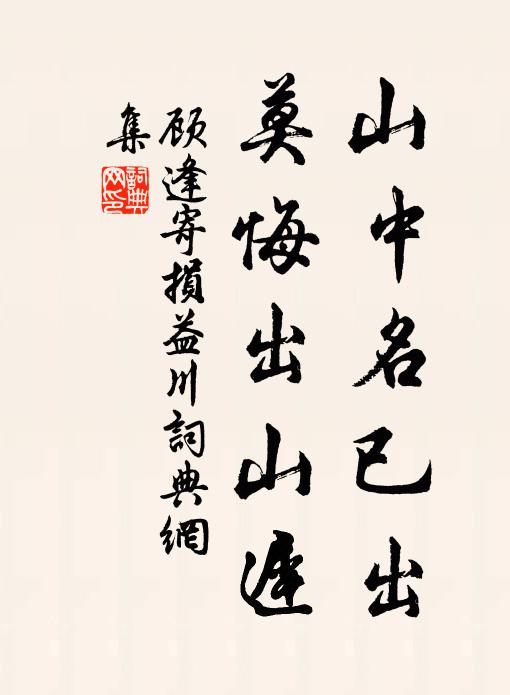 山中名已出
莫悔出山遲
顾逢寄損益川詞典網
集
詞典网印